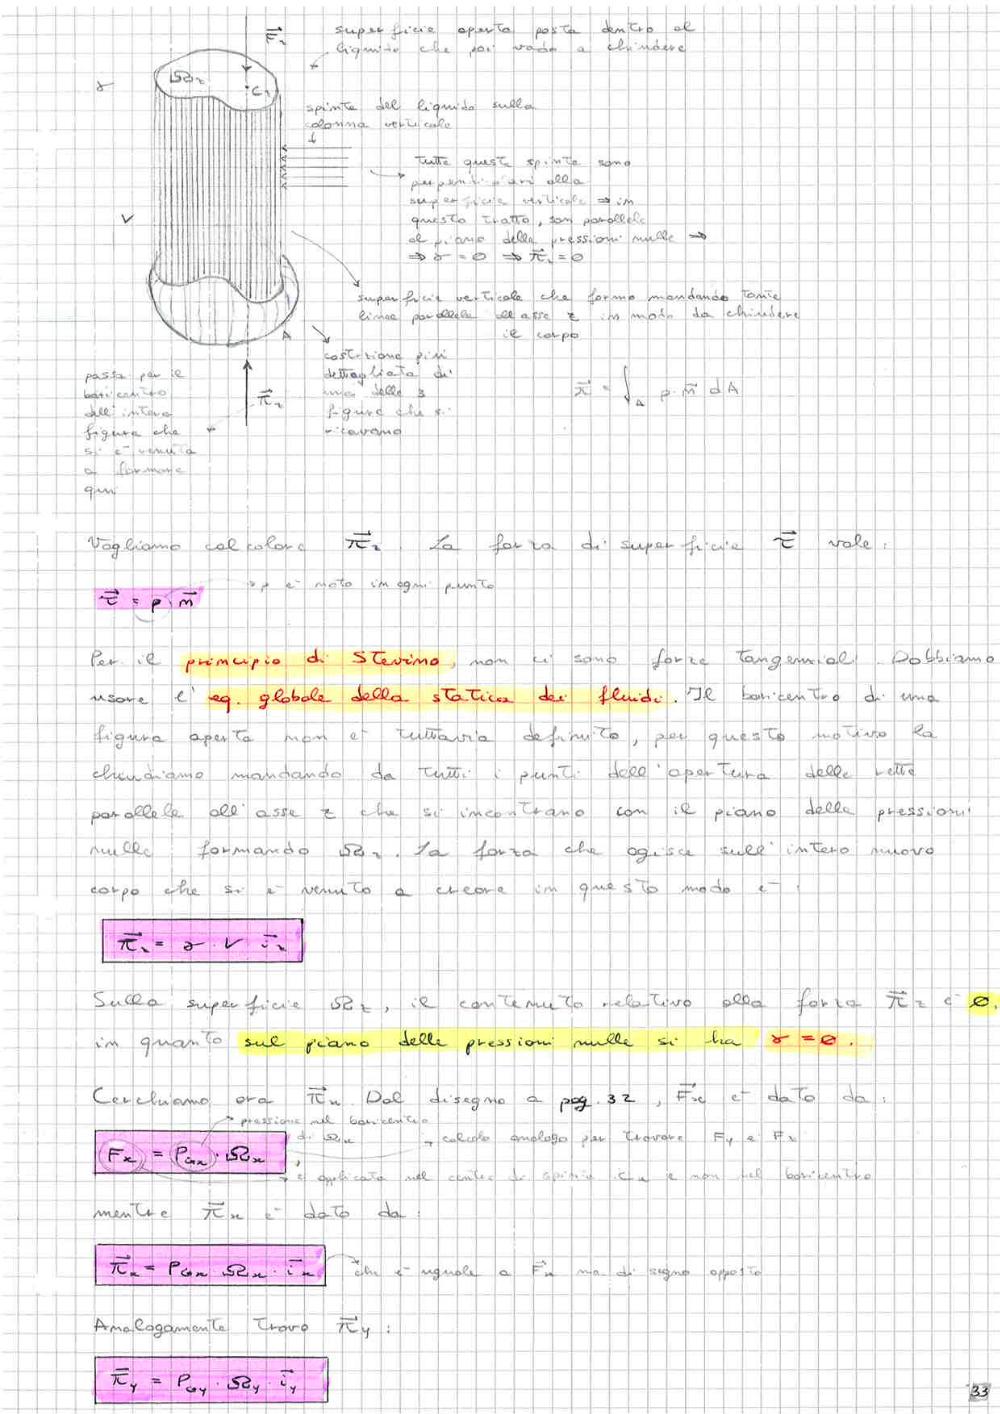 superficie aperta posta dentro al
liquido che poi vado a chiudere
Ω₂
C₁
γ
spinte del liquido sulla
colonna verticale
tutte queste spinte sono
perpendicolari alla
superficie verticale ⇒ in
questo tratto, son parallele
al piano della pressioni nulle ⇒
⇒ γ = 0 ⇒ π⃗₂ = 0
V
superficie verticale che formo mandando tante
linee parallele all'asse z in modo da chiudere
il corpo
A
costruzione più
dettagliata di
una delle 3
figure che si
ricavano
passa per il
baricentro
dell'intera
figura che
si è venuta
a formare
qui
π⃗z
π⃗ = ∫A p · n⃗ dA
Vogliamo calcolare π⃗z. La forza di superficie τ⃗ vale:
τ⃗ = p · n⃗
→ p è noto in ogni punto
Per il principio di Stevino, non ci sono forze tangenziali. Dobbiamo
usare l'eq. globale della statica dei fluidi. Il baricentro di una
figura aperta non è tuttavia definito, per questo motivo la
chiudiamo mandando da tutti i punti dell'apertura delle rette
parallele all'asse z che si incontrano con il piano delle pressioni
nulle formando Ωz. La forza che agisce sull'intero nuovo
corpo che si è venuto a creare in questo modo è:
π⃗z = γ · V · i⃗z
Sulla superficie Ωz, il contenuto relativo alla forza π⃗z è 0,
in quanto sul piano delle pressioni nulle si ha γ = 0.
Cerchiamo ora π⃗x. Dal disegno a pag. 32, F⃗x è dato da:
→ pressione nel baricentro
di Ωx
Fx = PGx · Ωx,
→ calcolo analogo per trovare Fy e Fz
→ è applicata nel centro di spinta Cx e non nel baricentro
mentre π⃗x è dato da:
π⃗x = PGx · Ωx · i⃗x
che è uguale a F⃗x ma di segno opposto
Analogamente trovo π⃗y:
π⃗y = PGy · Ωy · i⃗y
33